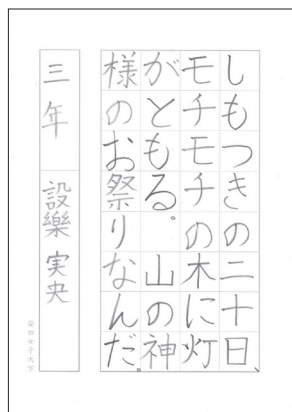 しもつきの二十日、
モチモチの木に灯
がともる。山の神
様のお祭りなんだ。
三年 設樂実央